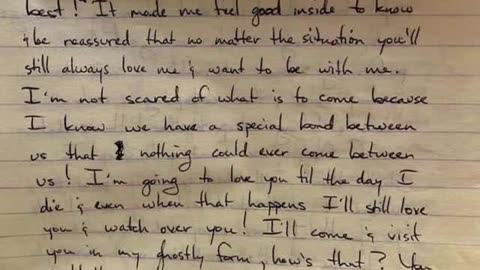 best! It made me feel good inside to know
& be reassured that no matter the situation you'll
still always love me & want to be with me.
I'm not scared of what is to come because
I know we have a special bond between
us that nothing could ever come between
us! I'm going to love you til the day I
die & even when that happens I'll still love
you & watch over you! I'll come & visit
you in my ghostly form, how's that? You